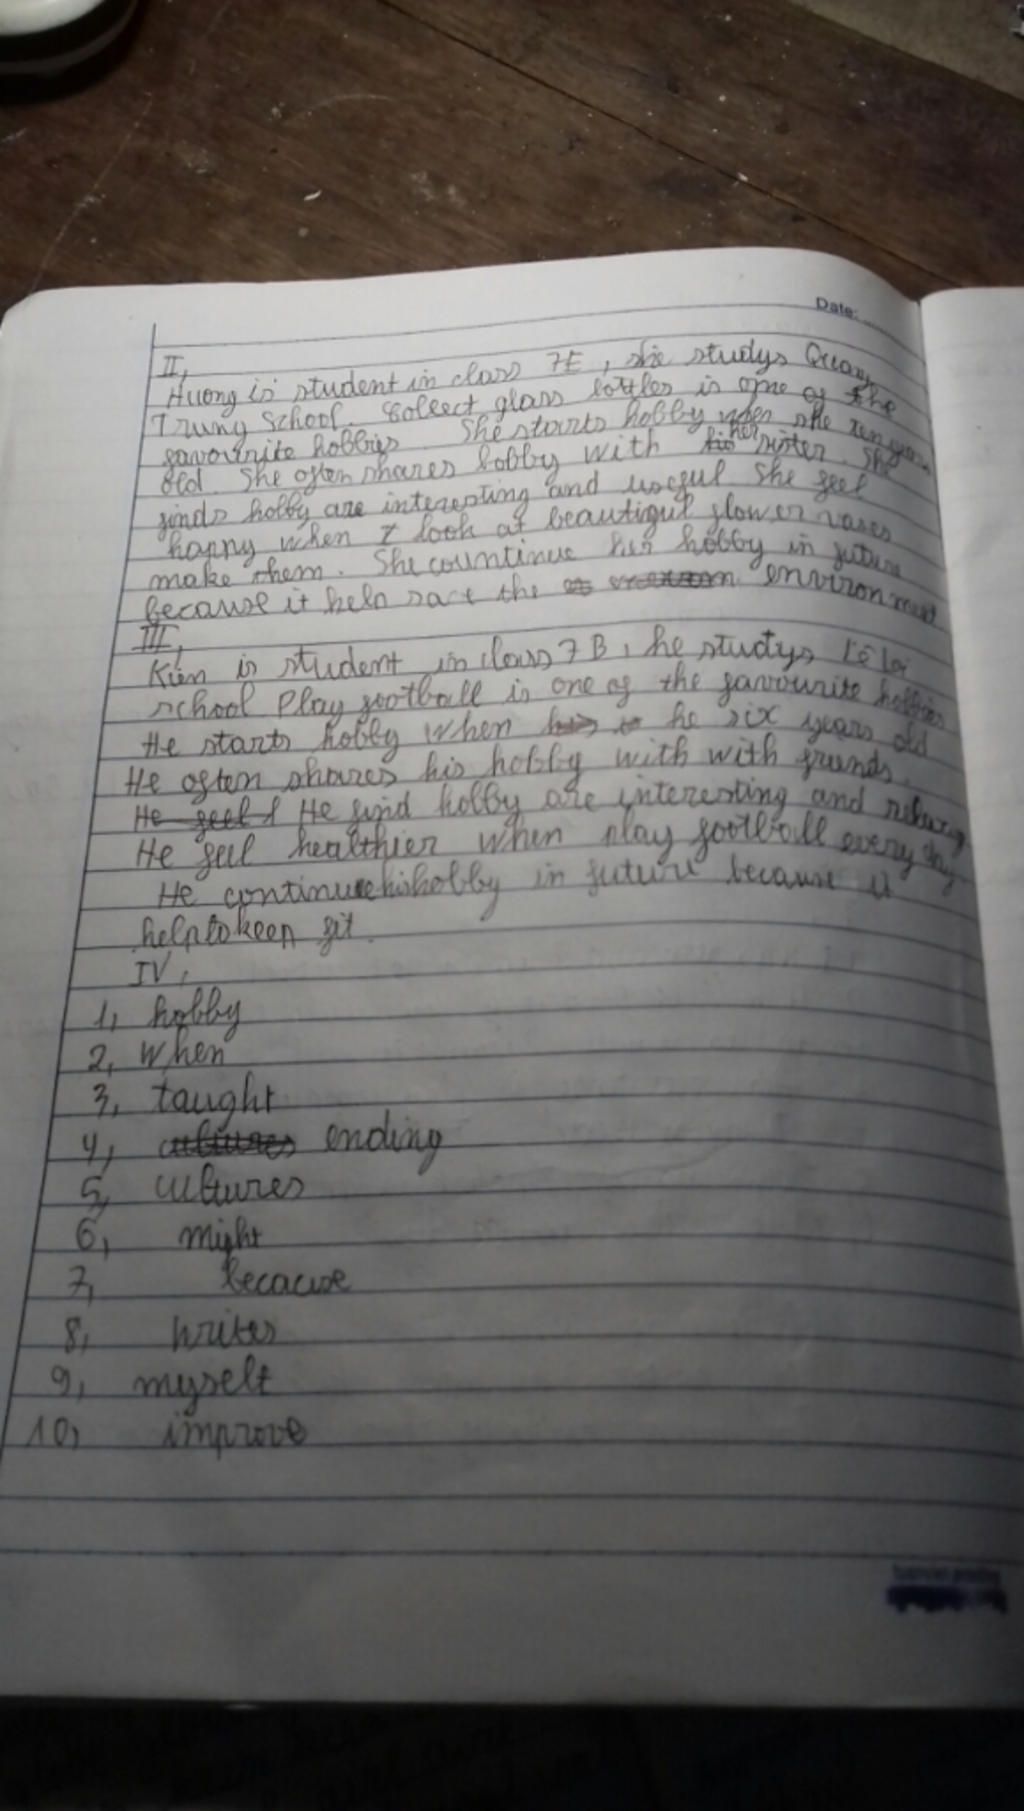 Date:
II,
Huong is student in class 7E, she studys Quang
Trung School. Collect glass bottles is one of the
favourite hobbies She starts hobby when she ten years
old. She often shares hobby with her sister. She
finds hobby are interesting and useful She feel
happy when I look at beautiful flower vases
make them. She countinue her hobby in future
because it help save the environment
III,
Kien is student in class 7B, he studys Lê Lợi
school Play football is one of the favourite hobbies
He starts hobby when he six years old
He often shares his hobby with with friends.
He find hobby are interesting and
He feel healthier when play football every day
He continue his hobby in future because it
help to keep fit.
IV,
1, hobby
2, When
3, taught
4, ending
5, cultures
6, might
7, becacuse
8, writes
9, myself
10, improve